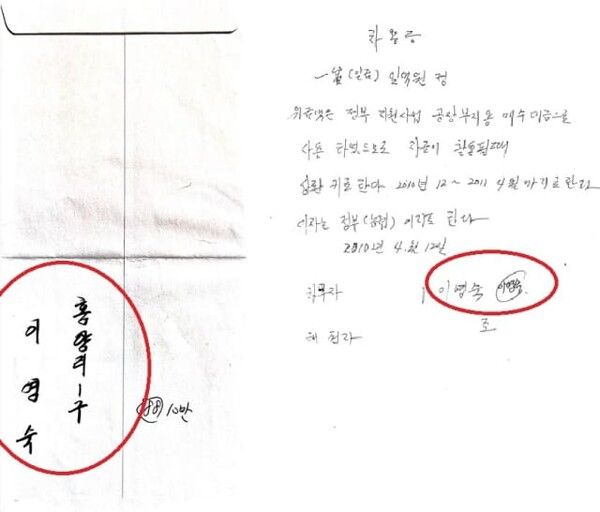 홍양리 1구
이영숙
10만
차용증
一金(일금) 일억원 정
위 금액은 정부 지원사업 공장부지용 매수 미금으로
사용 하였으므로 자금이 활용될때
상환 키로 한다 2010년 12 ~ 2011 4월까지로 한다
이자는 정부(농협) 이자로 한다
2010년 4월 12일
채무자 이영숙
조